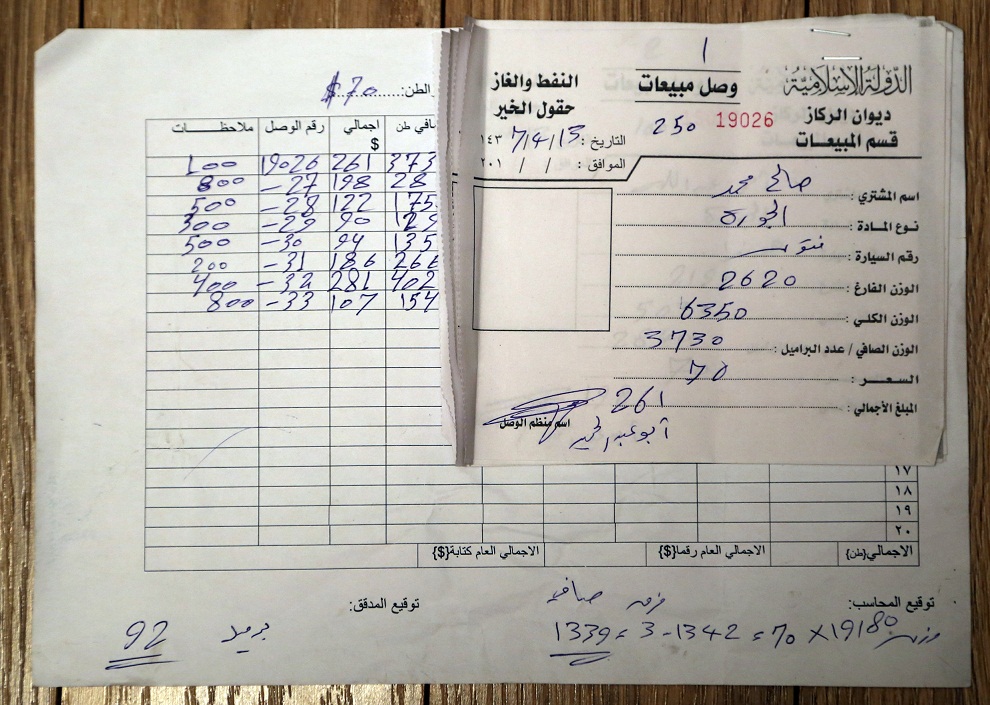 ١
الدولة الإسلامية
ديوان الركاز
قسم المبيعات
وصل مبيعات
250 19026
النفط والغاز
حقول الخير
التاريخ : 13/4/7 ١٤٣
الموافق : / / ٢٠١
اسم المشتري : صالح محمد
نوع المادة :
رقم السيارة :
الوزن الفارغ : 2620
الوزن الكلي : 6350
الوزن الصافي / عدد البراميل : 3730
السعر : 70
المبلغ الأجمالي : 261
اسم منظم الوصل
الطن: 70 $
اجمالي $ رقم الوصل ملاحظات
373 261 19026 100
28 198 27- 800
175 122 28- 500
129 90 29- 300
135 94 30- 500
266 186 31- 200
402 281 32- 400
154 107 33- 800
١٧
١٨
١٩
٢٠
الاجمالي{طن} الاجمالي العام رقما{$} الاجمالي العام كتابة{$}
توقيع المحاسب: توقيع المدقق:
صافي
19180 × 70 = 1342 - 3 = 1339
برميل 92